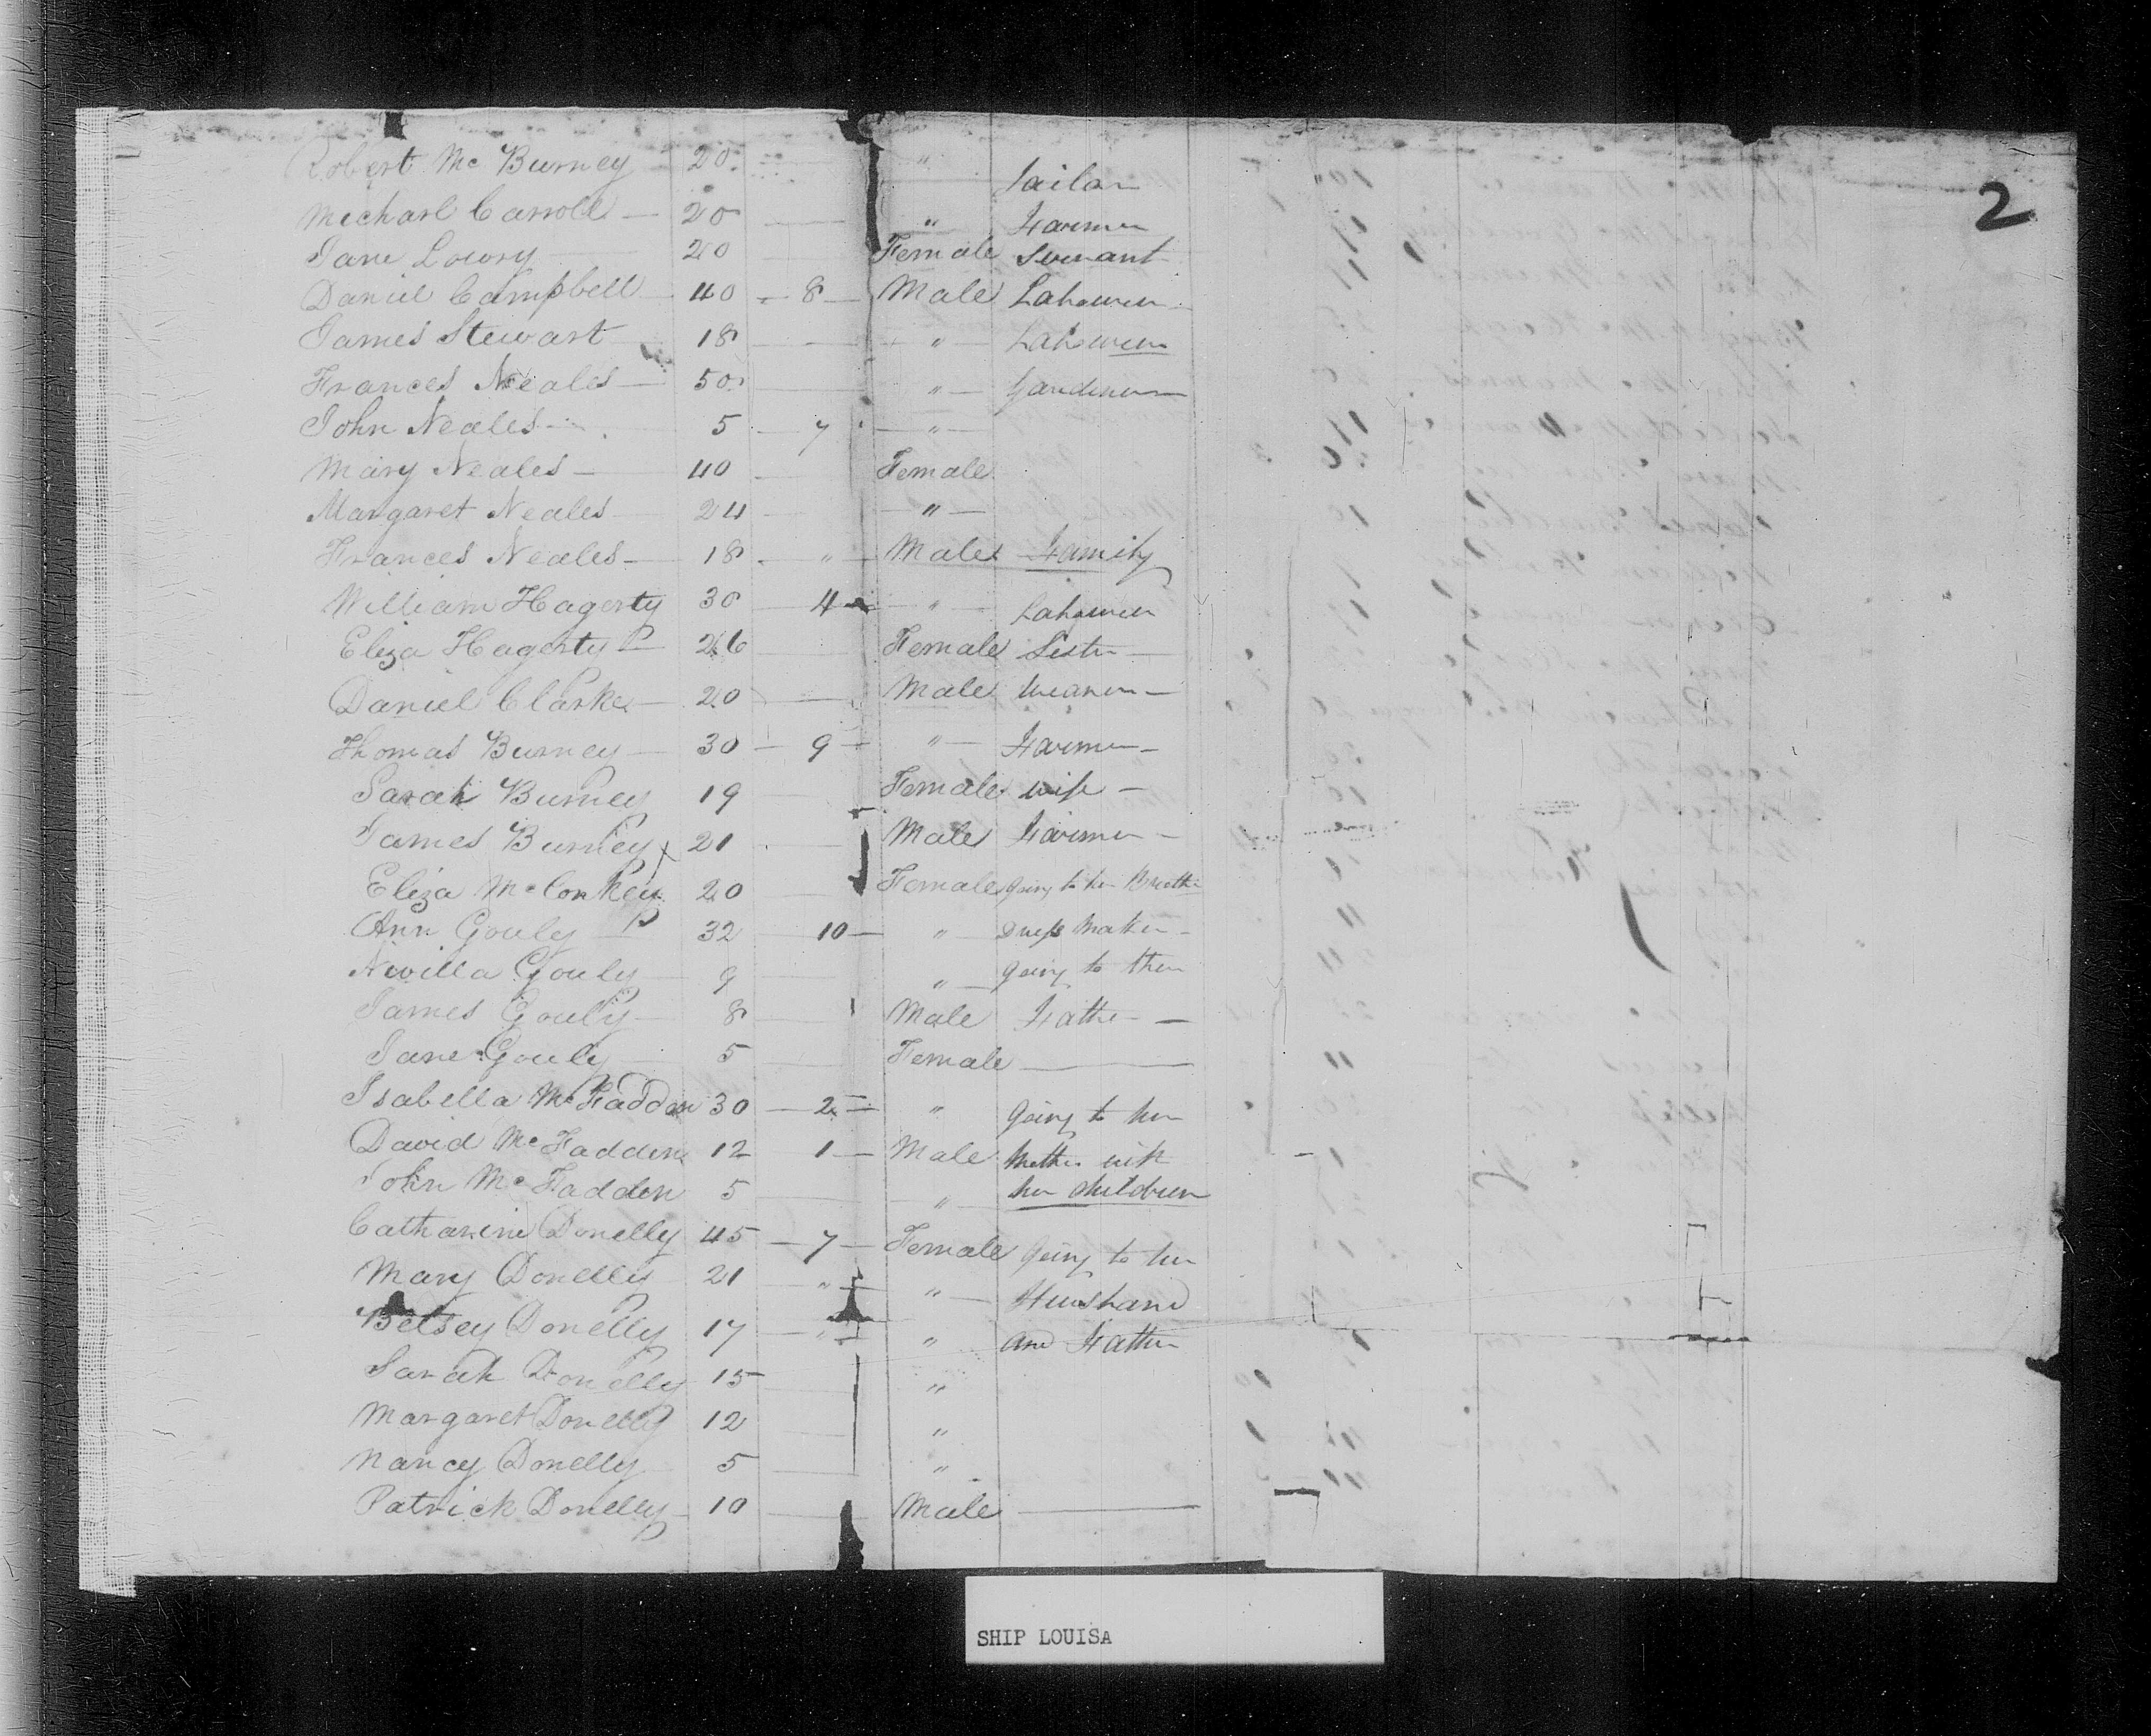 2
Robert Mc Burney 20 " Tailor
Michael Carroll — 20 — " Farmer
Jane Lowry 20 Female Servant
Daniel Campbell 40 - 8 — Male Labourer
James Stewart 18 — " — Labourer
Frances Neales — 50 " — Gardener
John Neales - 5 - 7 — " —
Mary Neales — 40 - Female
Margaret Neales 24 - — " —
Frances Neales — 18 - " — Male Family
William Hagerty 30 — 4 — " — Labourer
Eliza Hagerty 26 Female Sister
Daniel Clarke — 20 — Male weaver —
Thomas Burney — 30 — 9 — " — Farmer —
Sarah Burney 19 Female wife —
James Burney 21 — Male Farmer —
Eliza McConkey 20 Female going to her Brother
Ann Gouly 32 10 — " — Dress Maker —
Gouly 9 " — going to their
James Gouly — 8 Male Father —
Jane Gouly 5 Female —
Isabella McFadden 30 — 2 — " going to her
David McFadden 12 1 — Male Mother with
John McFadden 5 " her children
Catharine Donelly 45 — 7 — Female going to her
Mary Donelly 21 " " — Husband
Betsey Donelly 17 — " " and Father
Sarah Donelly 15 "
Margaret Donelly 12 "
Nancy Donelly 5 "
Patrick Donelly 10 Male —
SHIP LOUISA